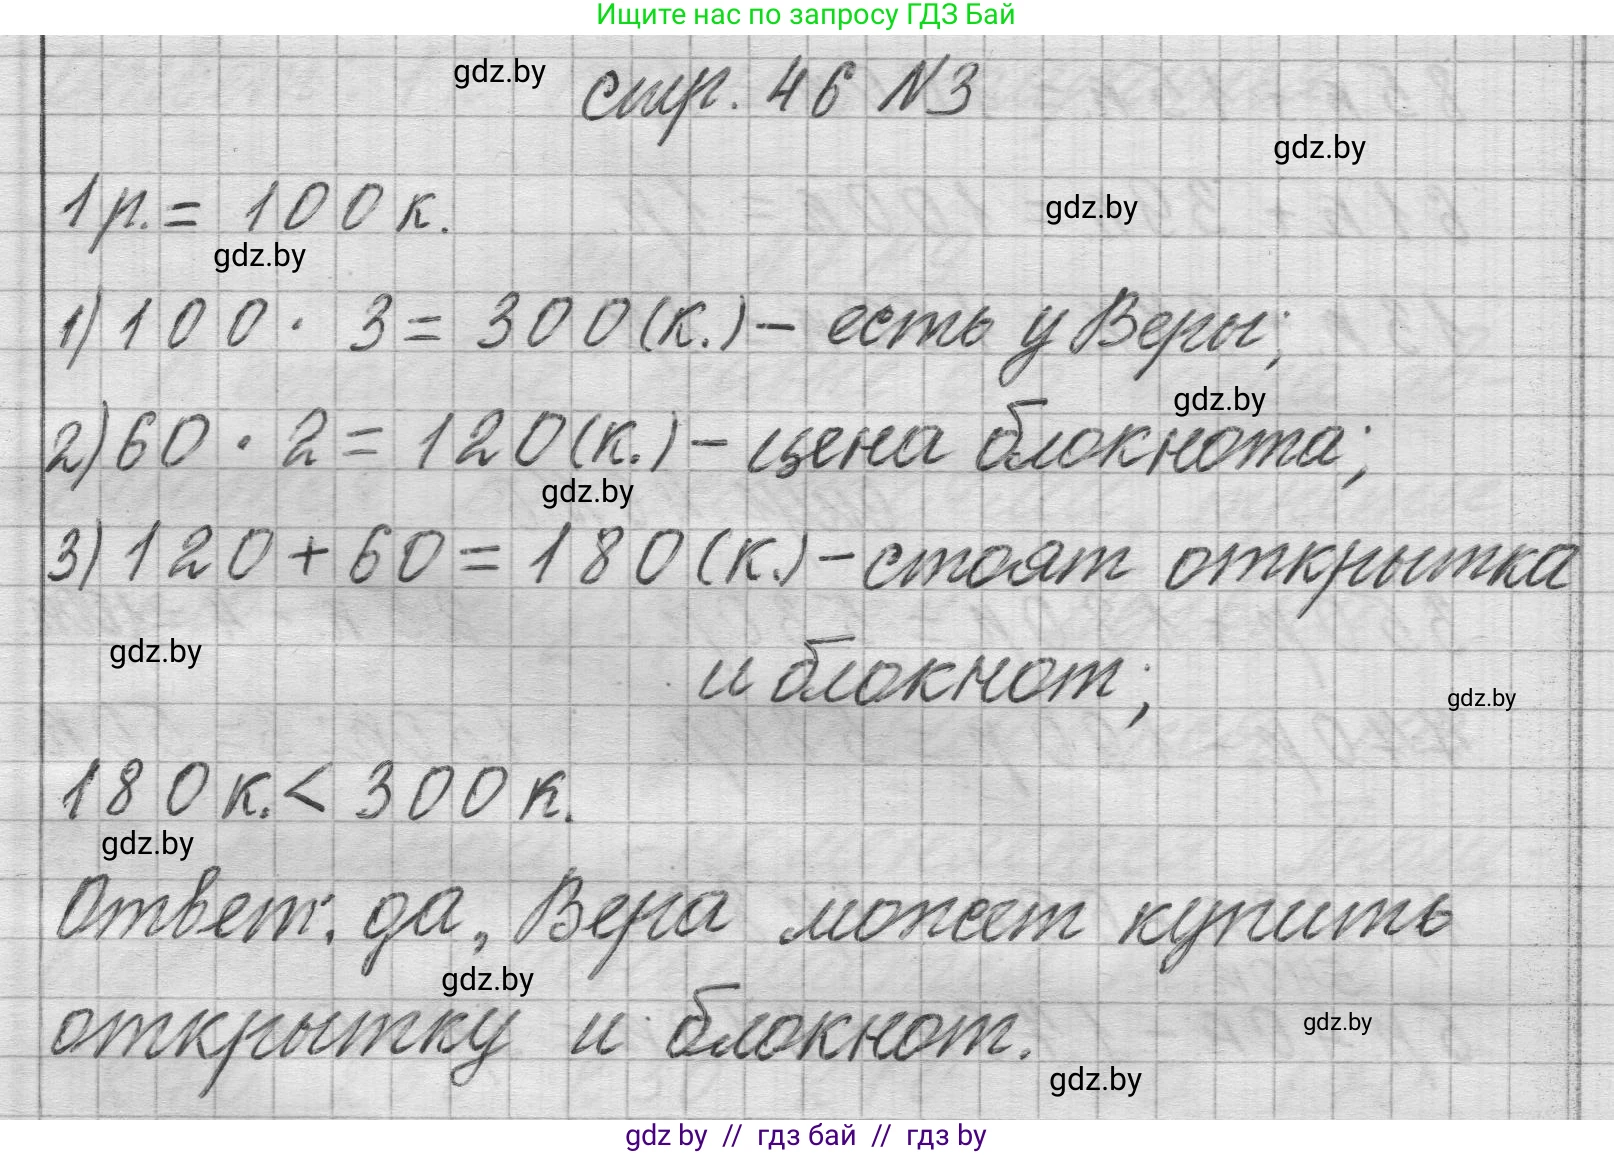 Ищите нас по запросу ГДЗ Бай
gdz.by
стр. 46 №3
gdz.by
1р. = 100 к.
gdz.by
gdz.by
1) 100 · 3 = 300 (к.) – есть у Веры;
gdz.by
2) 60 · 2 = 120 (к.) – цена блокнота;
gdz.by
3) 120 + 60 = 180 (к.) – стоят открытка
gdz.by
и блокнот;
gdz.by
180 к. < 300 к.
gdz.by
Ответ: да, Вера может купить
gdz.by
открытку и блокнот.
gdz.by
gdz.by
gdz by // гдз бай // гдз by